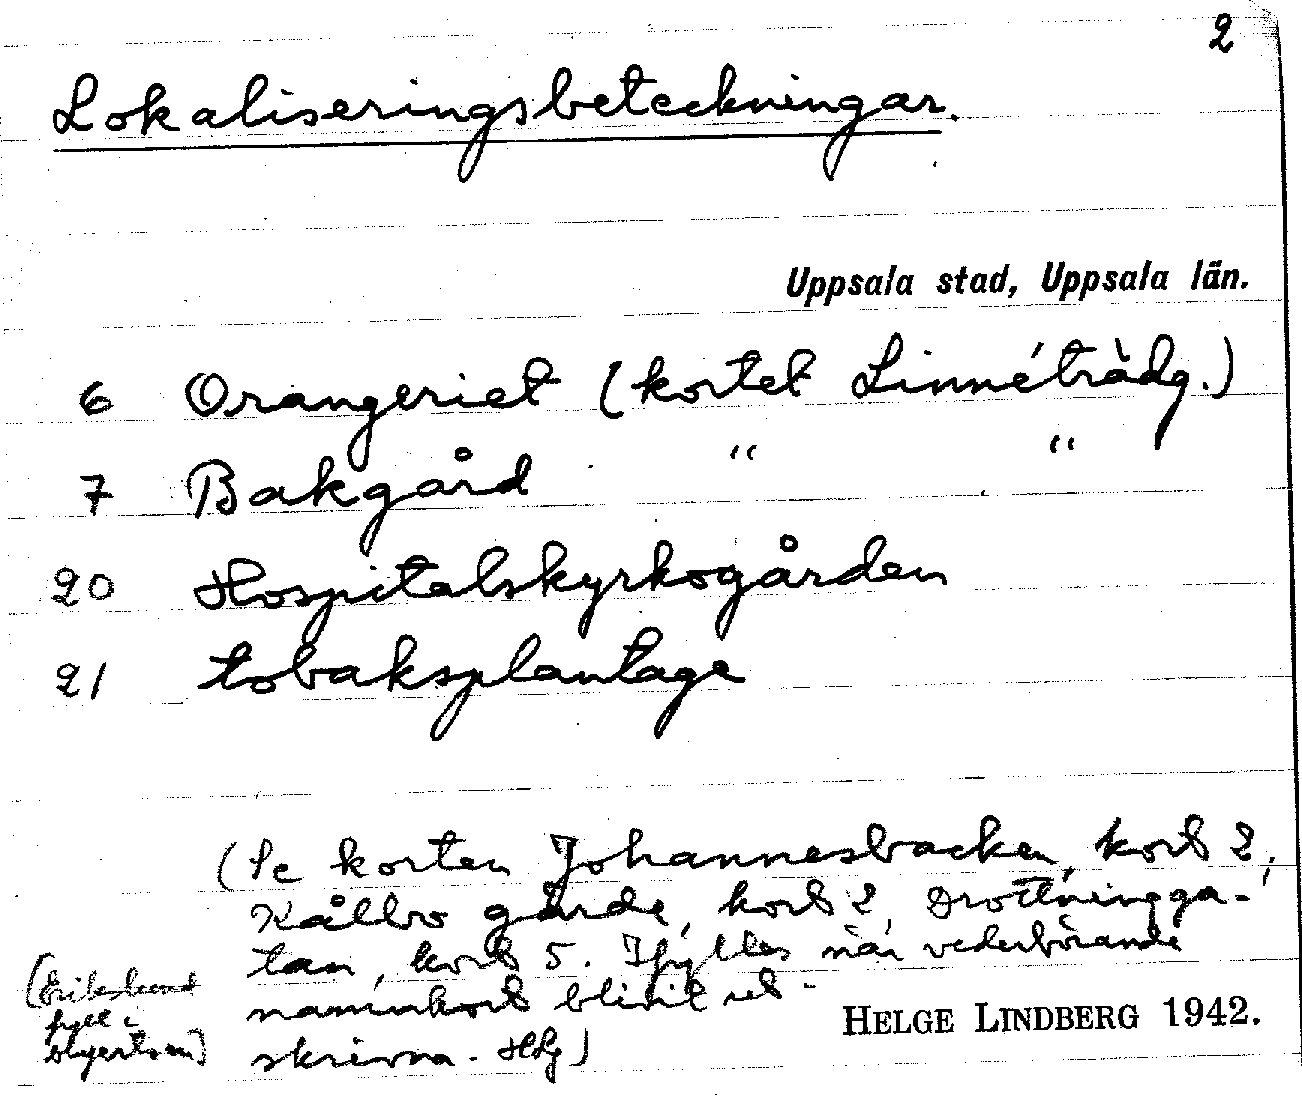 2
Lokaliseringsbeteckningar.
Uppsala stad, Uppsala län.
6 Orangeriet (kortet Linnéträdg.)
7 Bakgård " "
20 Hospitalskyrkogården
21 tobaksplantage
(Se korten Johannesbacken, kort 2,
Kålbo gärde, kort 2, Drottningga-
tan, kort 5. Ifylles när vederbörande
namnkort blivit ut-
skrivna. HLg)
(Erikslund
fyll-
HELGE LINDBERG 1942.